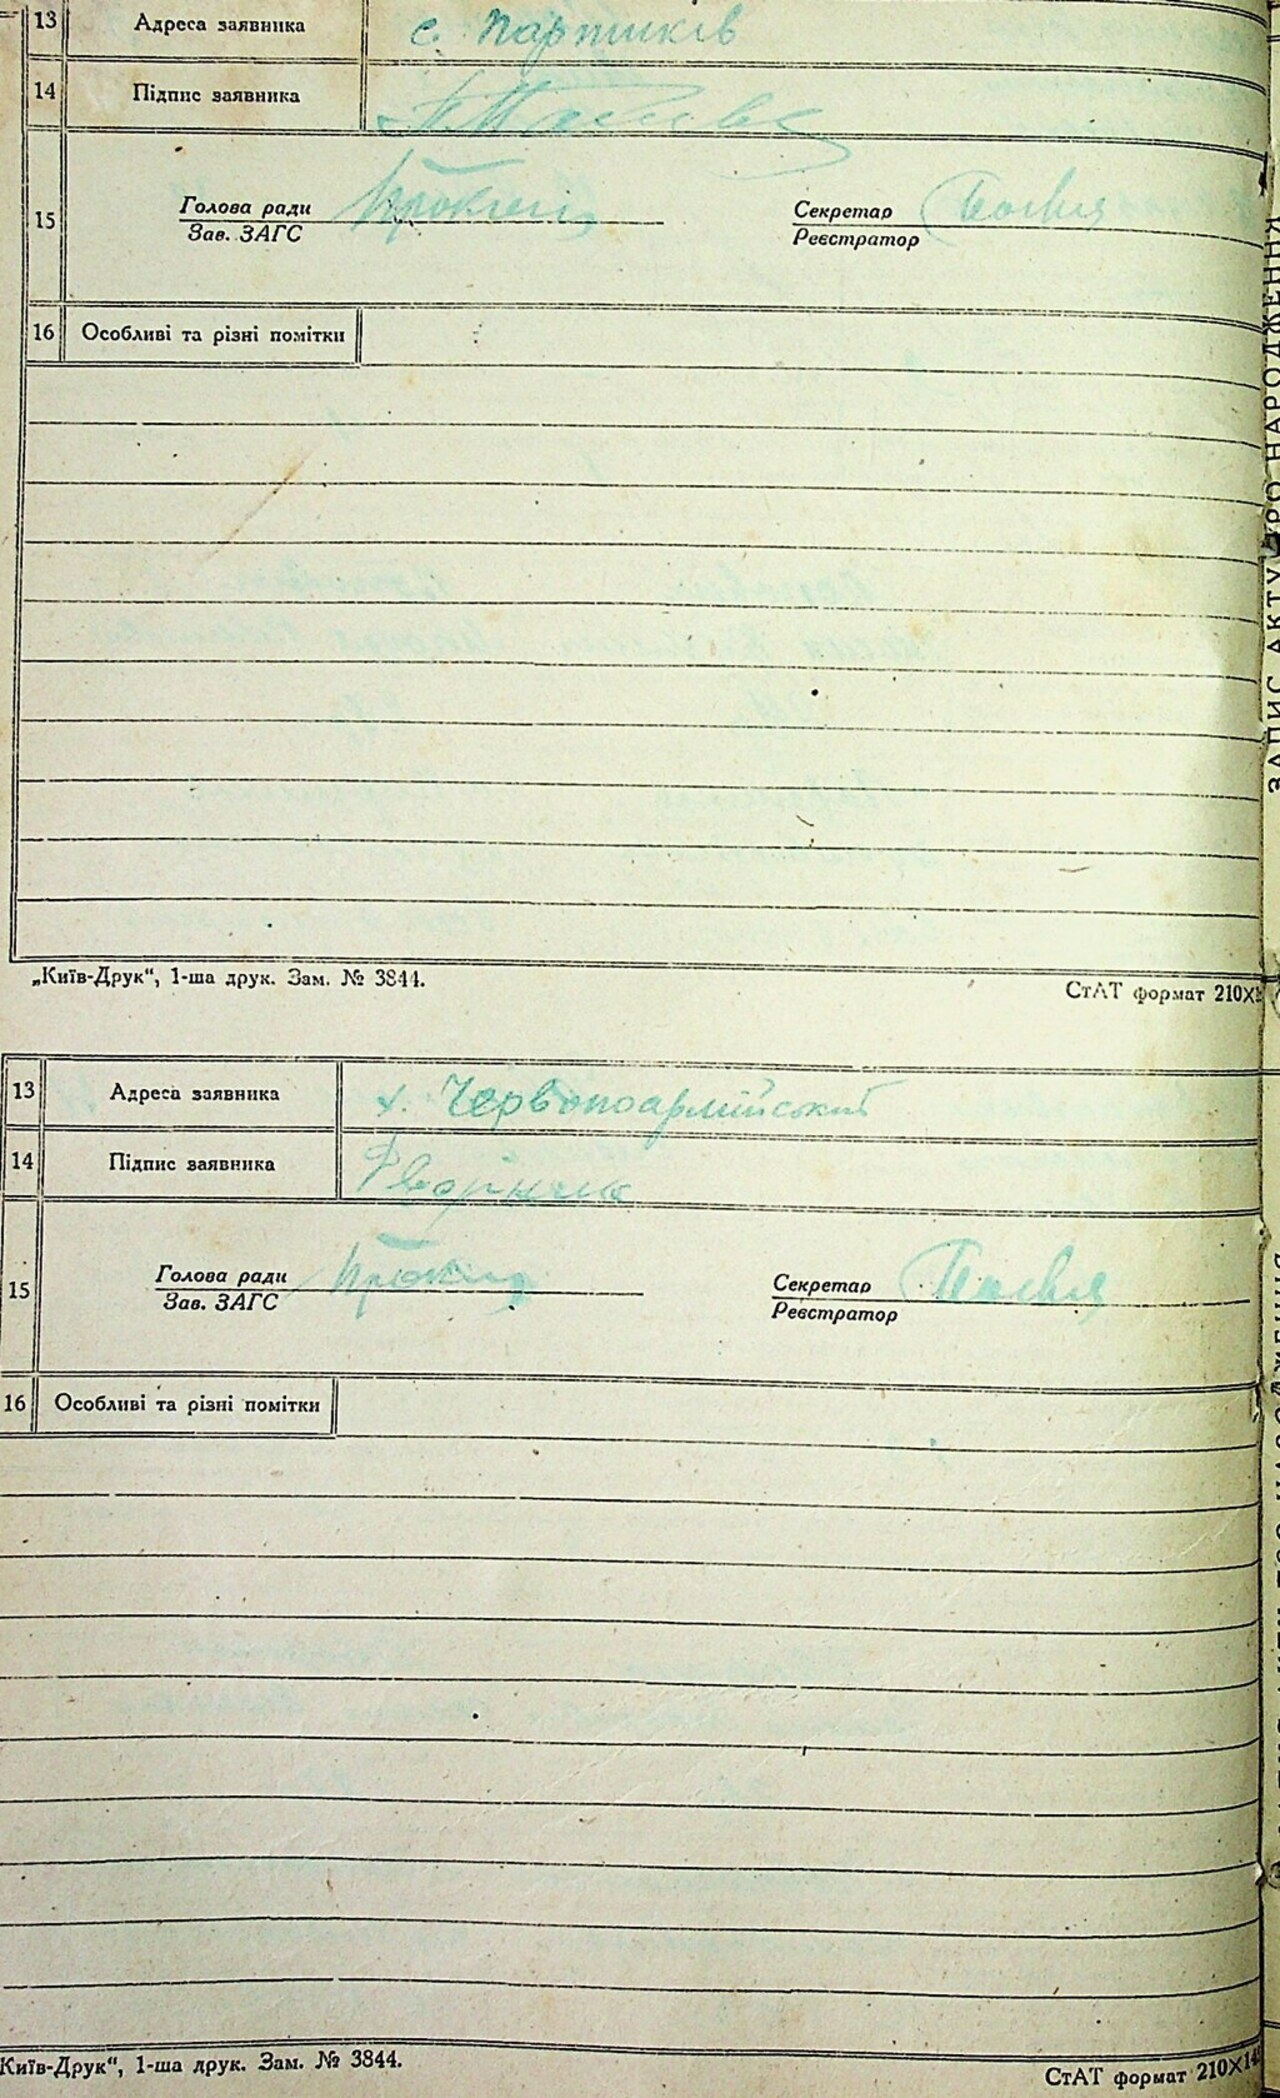 13 Адреса заявника с. Партиків
14 Підпис заявника
15 Голова ради Секретар
Зав. ЗАГС Реєстратор
16 Особливі та різні помітки
„Київ-Друк“, 1-ша друк. Зам. № 3844. СтАТ формат 210X
ЗАПИС АКТУ ПРО НАРОДЖЕННЯ
13 Адреса заявника х. Червоноармійський
14 Підпис заявника
15 Голова ради Секретар
Зав. ЗАГС Реєстратор
16 Особливі та різні помітки
Київ-Друк“, 1-ша друк. Зам. № 3844. СтАТ формат 210X14